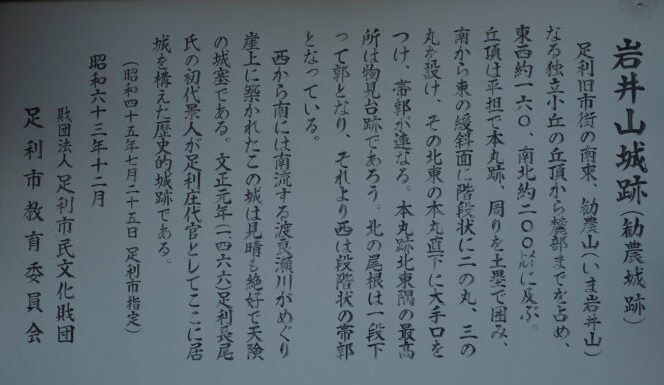 岩井山城跡（勧農城跡）
足利旧市街の南東、勧農山（いま岩井山）
なる独立小丘の丘頂から麓部までを占め、
東西約一六〇、南北約二〇〇㍍に及ぶ。
丘頂は平担で本丸跡、周りを土塁で囲み、
南から東の緩斜面に階段状に二の丸、三の
丸を設け、その北東の本丸直下に大手口を
つけ、帯郭が連なる。本丸跡北東隅の最高
所は物見台跡であろう。北の尾根は一段下
って郭となり、それより西は段階状の帯郭
となっている。
西から南には南流する渡良瀬川がめぐり
崖上に築かれたこの城は見晴も絶好で天険
の城塞である。文正元年（一四六六）足利長尾
氏の初代景人が足利庄代官としてここに居
城を構えた歴史的城跡である。
（昭和四十五年七月二十五日　足利市指定）
昭和六十三年十二月
財団法人　足利市民文化財団
足利市教育委員会